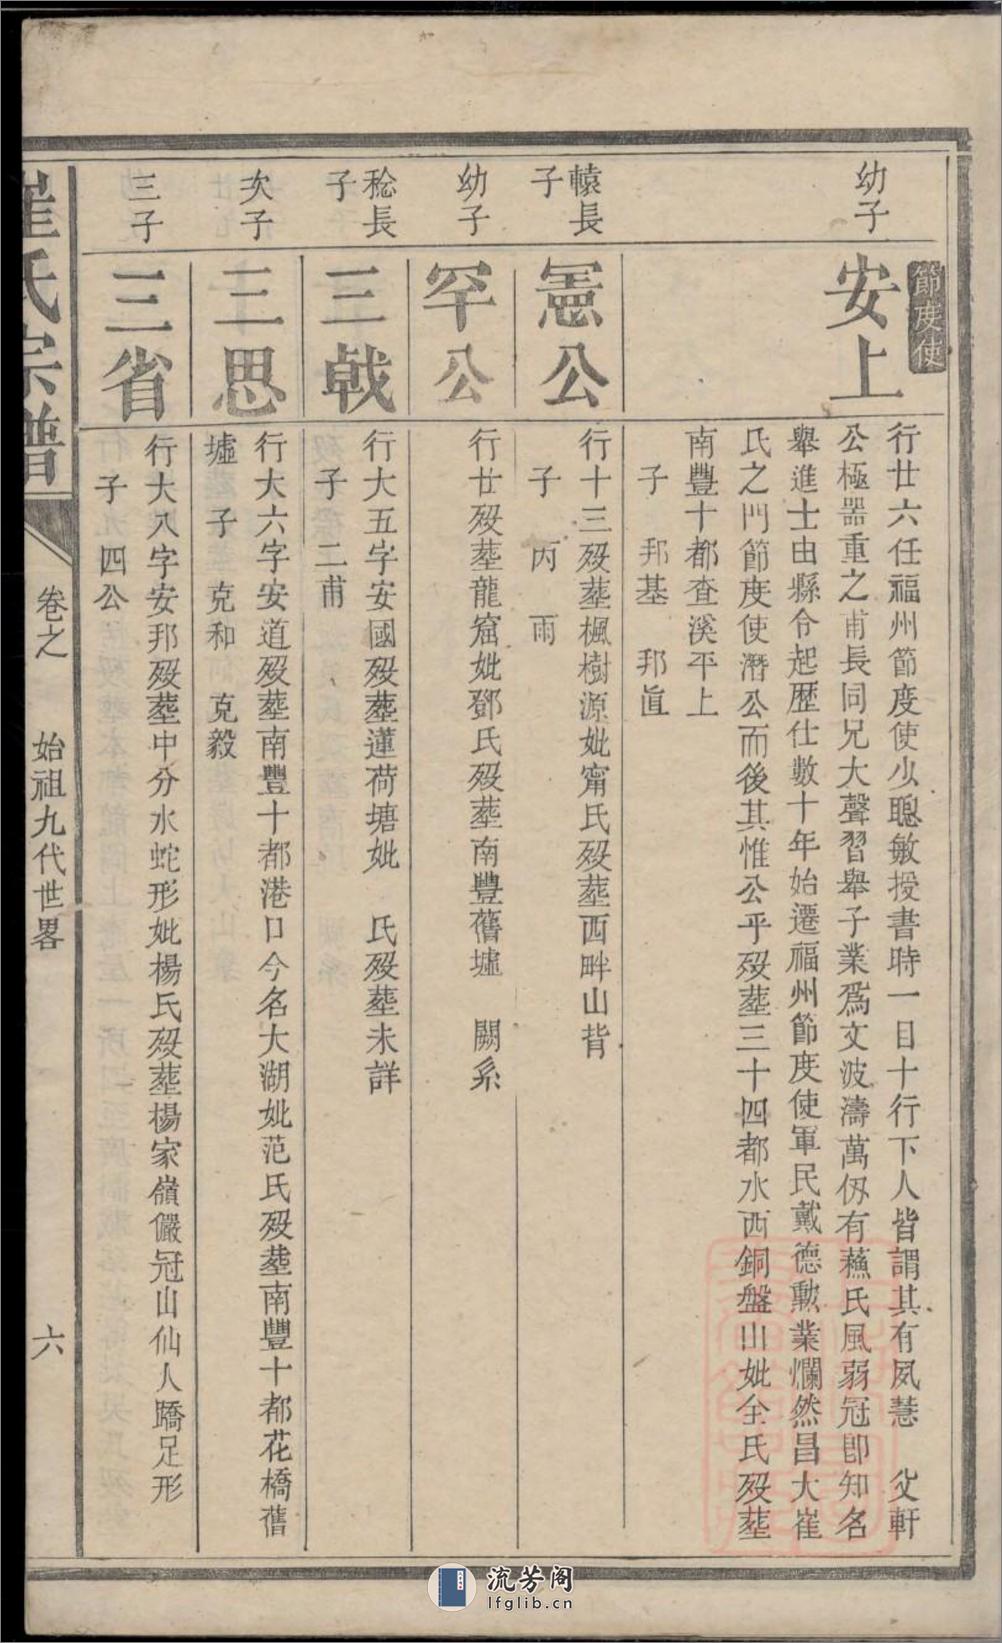 幼子
節度使
安上
行廿六任福州節度使少聰敏授書時一目十行下人皆謂其有夙慧 父軒
公極器重之甫長同兄大聲習舉子業爲文波濤萬仭有蘓氏風弱冠即知名
舉進士由縣令起歷仕數十年始遷福州節度使軍民戴德勳業爛然昌大崔
氏之門節度使潛公而後其惟公乎歿塟三十四都水西銅盤山妣全氏歿塟
南豐十都查溪平上
子 邦基 邦直
轅長子
憲公
行十三歿塟楓樹源妣甯氏歿塟西畔山背
子 丙 雨
幼子
罕公
行廿歿塟龍窟妣鄧氏歿塟南豐舊墟 闕系
稔長子
三戟
行大五字安國歿塟蓮荷塘妣 氏歿塟未詳
子 二甫
次子
三思
行大六字安道歿塟南豐十都港口今名大湖妣范氏歿塟南豐十都花橋舊
墟 子 克和 克毅
三子
三省
行大八字安邦歿塟中分水蛇形妣楊氏歿塟楊家嶺儼冠山仙人蹻足形
子 四公
崔氏宗譜
卷之 始祖九代世畧
六
流芳阁
lfglib.cn